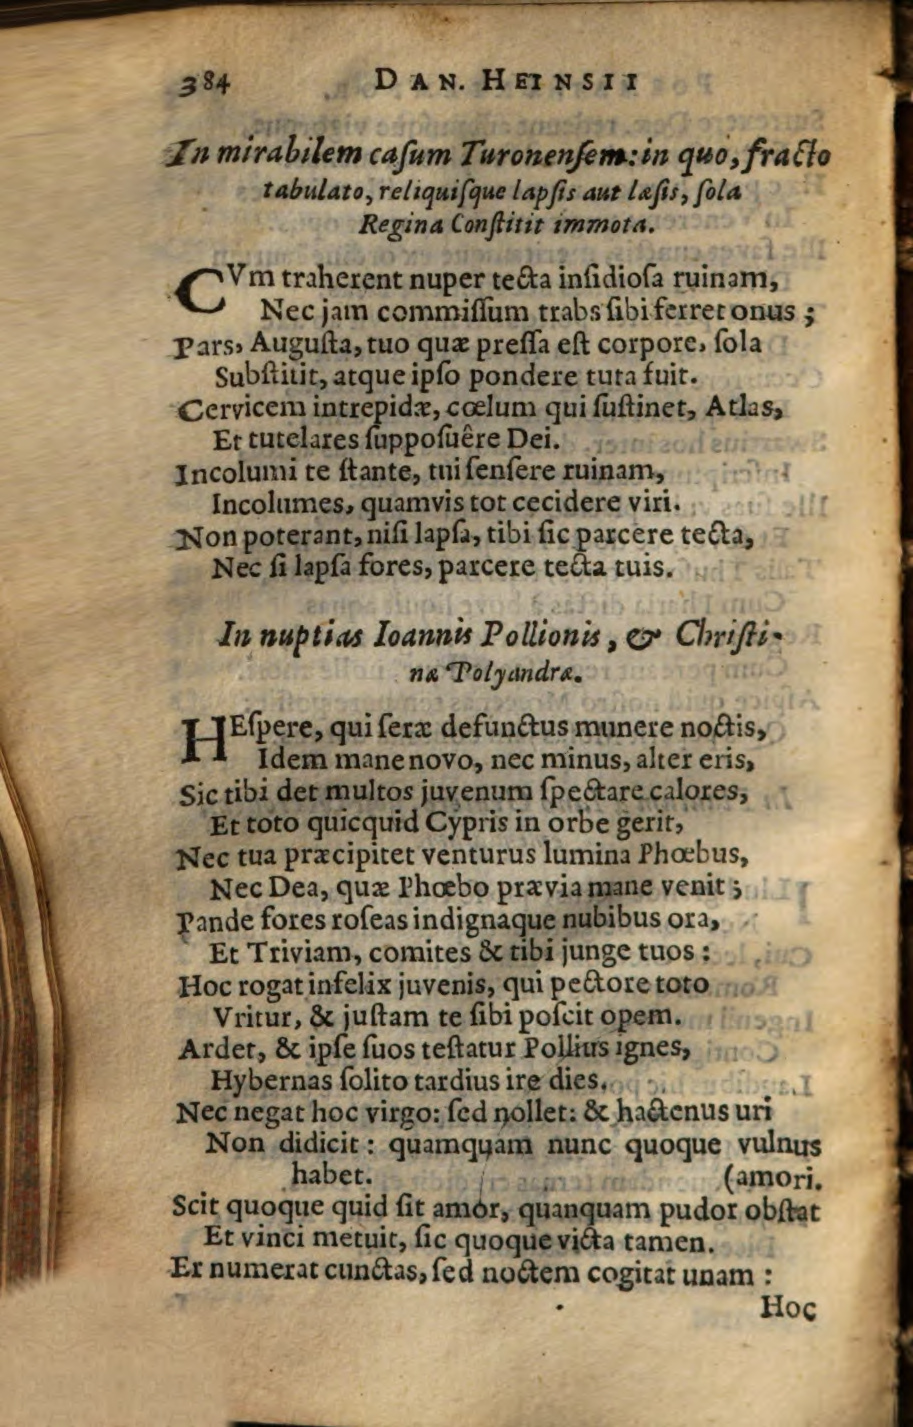 384 DAN. HEINSII
In mirabilem caſum Turonenſem: in quo, fracto
tabulato, reliquiſque lapſis aut læſis, ſola
Regina Conſtitit immota.
CVm traherent nuper tecta inſidioſa ruinam,
Nec jam commiſſum trabs ſibi ferret onus ;
Pars, Auguſta, tuo quæ preſſa eſt corpore, ſola
Subſtitit, atque ipſo pondere tuta fuit.
Cervicem intrepidæ, cœlum qui ſuſtinet, Atlas,
Et tutelares ſuppoſuêre Dei.
Incolumi te ſtante, tui ſenſere ruinam,
Incolumes, quamvis tot cecidere viri.
Non poterant, niſi lapſa, tibi ſic parcere tecta,
Nec ſi lapſa fores, parcere tecta tuis.
In nuptias Ioannis Pollionis, & Chriſti-
næ Polyandræ.
HEſpere, qui ſeræ defunctus munere noctis,
Idem mane novo, nec minus, alter eris,
Sic tibi det multos juvenum ſpectare calores,
Et toto quicquid Cypris in orbe gerit,
Nec tua præcipitet venturus lumina Phœbus,
Nec Dea, quæ Phœbo prævia mane venit ;
Pande fores roſeas indignaque nubibus ora,
Et Triviam, comites & tibi junge tuos :
Hoc rogat infelix juvenis, qui pectore toto
Vritur, & juſtam te ſibi poſcit opem.
Ardet, & ipſe ſuos teſtatur Pollius ignes,
Hybernas ſolito tardius ire dies.
Nec negat hoc virgo: ſed nollet: & hactenus uri
Non didicit : quamquam nunc quoque vulnus
habet. (amori.
Scit quoque quid ſit amor, quanquam pudor obſtat
Et vinci metuit, ſic quoque victa tamen.
Et numerat cunctas, ſed noctem cogitat unam :
Hoc